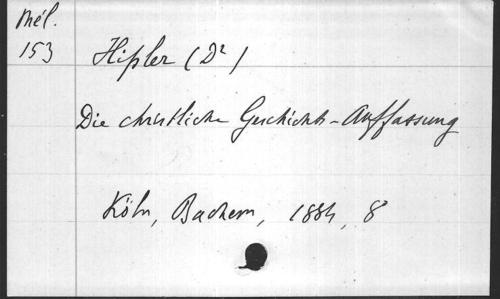 Mél.
153
Hipler (Dr)
Die christliche Geschichts-Auffassung
Köln, Bachem, 1884, 8